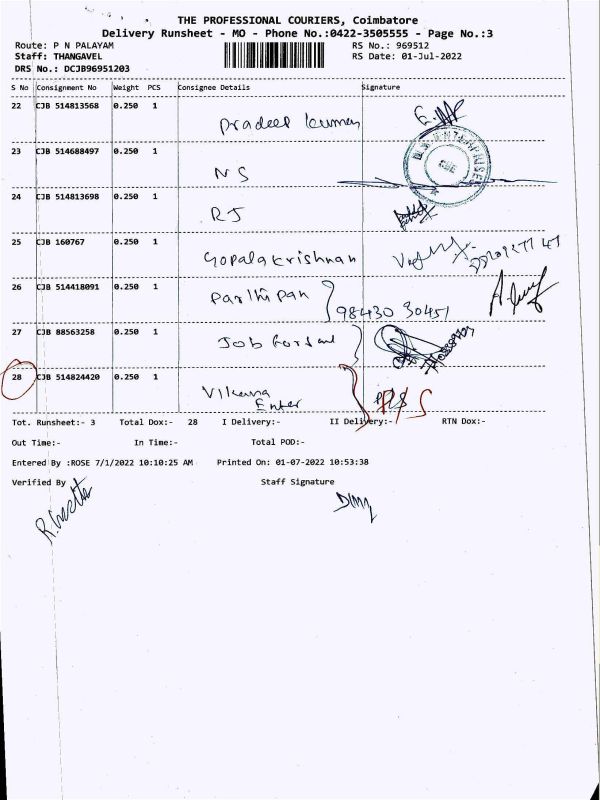 THE PROFESSIONAL COURIERS, Coimbatore
Delivery Runsheet - MO - Phone No.:0422-3505555 - Page No.:3
Route: P N PALAYAM RS No.: 969512
Staff: THANGAVEL RS Date: 01-Jul-2022
DRS No.: DCJB96951203
S No Consignment No Weight PCS Consignee Details Signature
22 CJB 514813568 0.250 1
Pradeep kumar
23 CJB 514688497 0.250 1
NS
24 CJB 514813698 0.250 1
RJ
25 CJB 160767 0.250 1
Gopalakrishnan
26 CJB 514418091 0.250 1
Parthipan
98430 30451
27 CJB 88563258 0.250 1
Job
28 CJB 514824420 0.250 1
Enter
Tot. Runsheet:- 3 Total Dox:- 28 I Delivery:- II Delivery:- RTN Dox:-
Out Time:- In Time:- Total POD:-
Entered By :ROSE 7/1/2022 10:10:25 AM Printed On: 01-07-2022 10:53:38
Verified By Staff Signature